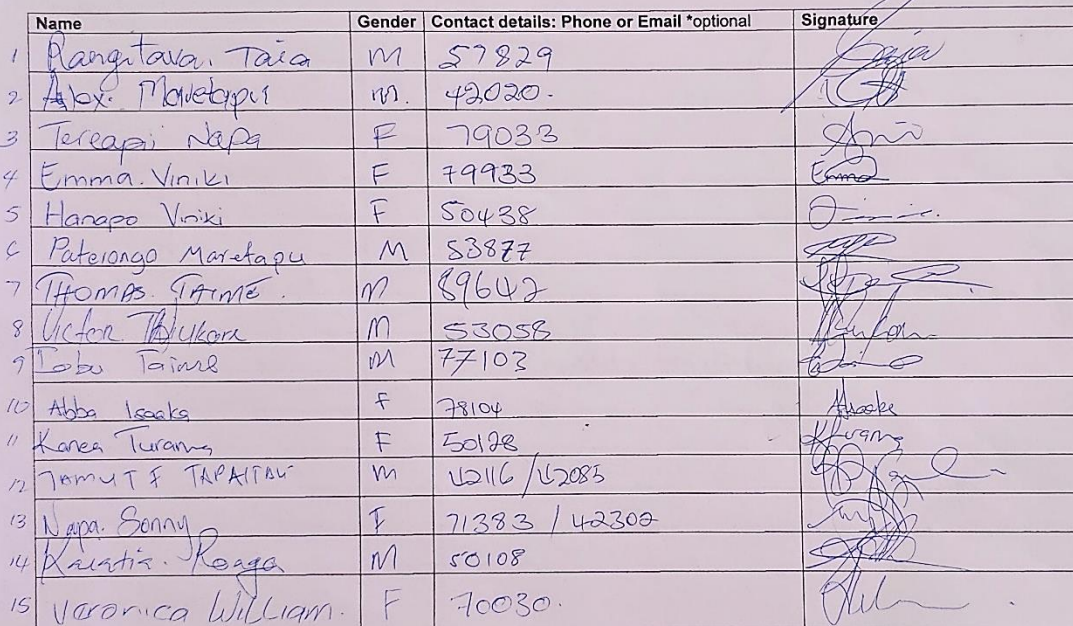 Name Gender Contact details: Phone or Email *optional Signature
1 Rangitava. Taia M 57829 Taia
2 Alex. Maretapu M. 42020.
3 Tereapii Napa F 79033
4 Emma. Viniki F 79933 Emma
5 Hanapo Viniki F 50438
6 Pateiongo Maretapu M 53877
7 THOMAS. TAIME. M 89642
8 Victor M 53058
9 Tobu Taime M 77103
10 Abba Isaaka F 78104
11 Kanea Turama F 50128
12 TAPAITAU M 42116 / 42085
13 Napa. Sonny F 71383 / 42302
14 Roaga M 50108
15 Veronica William. F 70030.